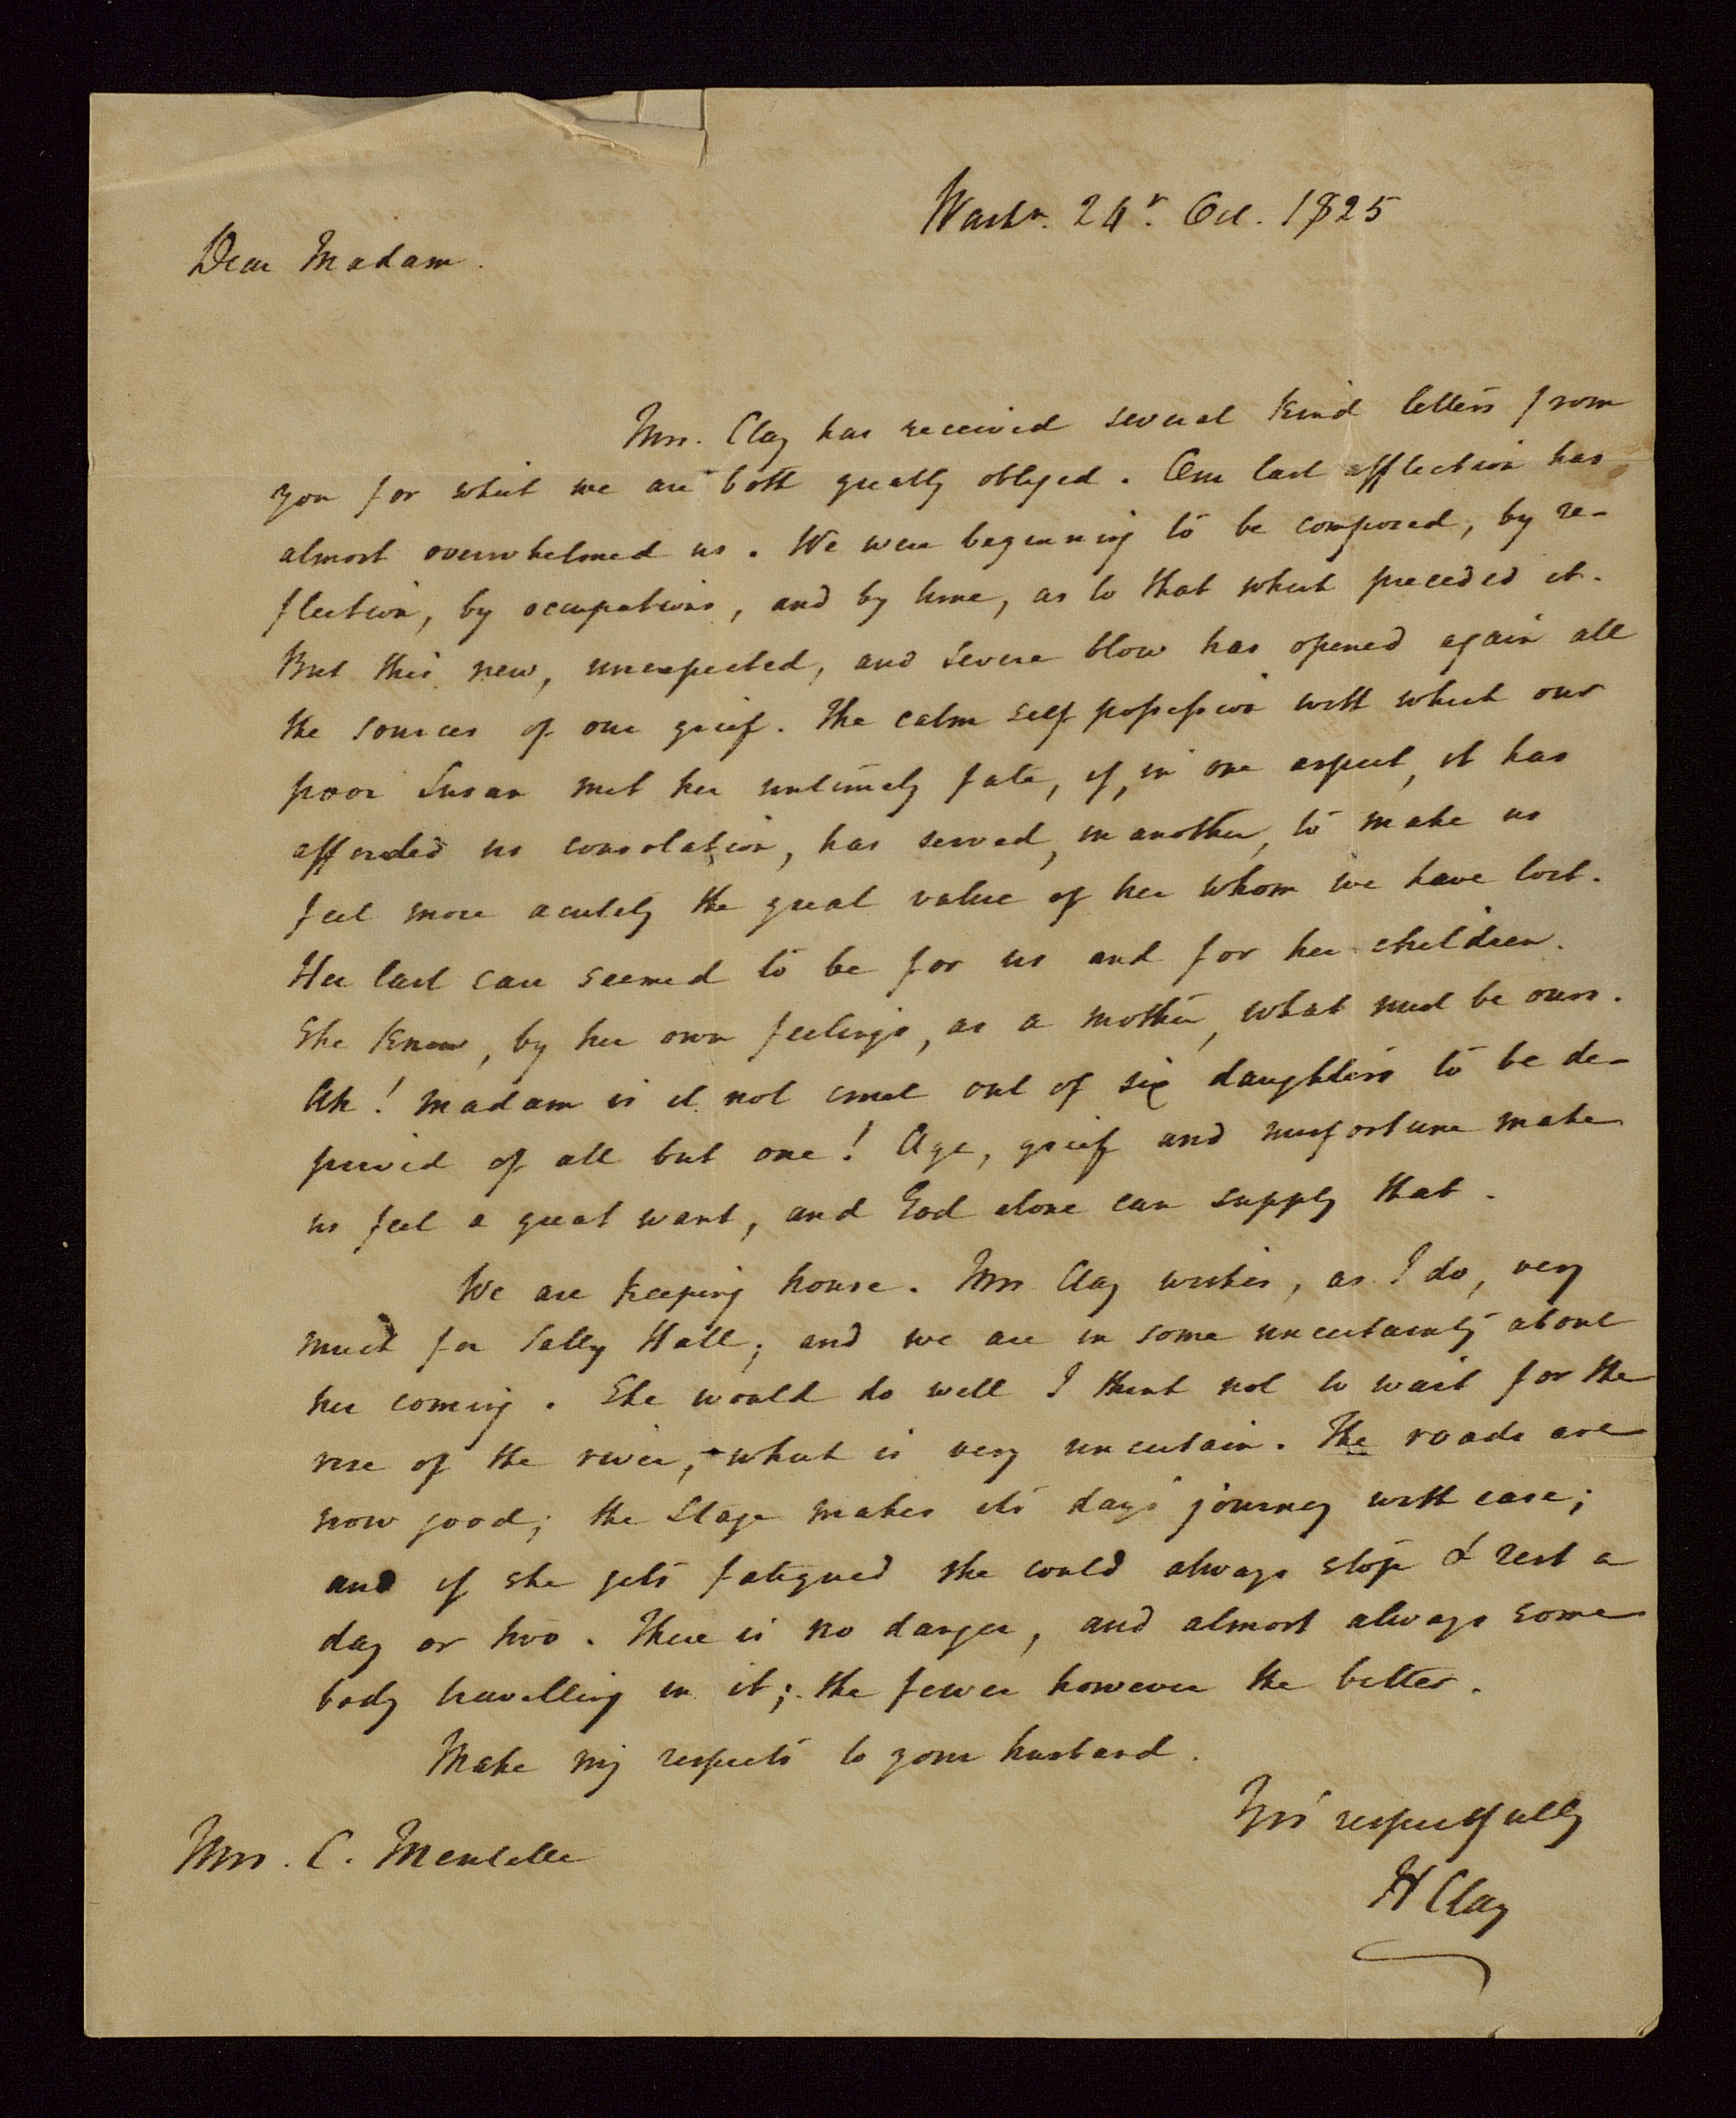 Washn. 24h. Oct. 1825
Dear Madam.
Mrs. Clay has received several kind letters from
you for which we are both greatly obliged. Our last affliction has
almost overwhelmed us. We were beginning to be composed, by re-
flection, by occupations, and by time, as to that which preceded it.
But this new, unexpected, and severe blow has opened again all
the sources of our grief. The calm self possession with which our
poor Susan met her untimely fate, if, in one aspect, it has
afforded us consolation, has served, in another, to make us
feel more acutely the great value of her whom we have lost.
Her last care seemed to be for us and for her children.
She knew, by her own feelings, as a mother, what must be ours.
Ah! Madam is it not cruel out of six daughters to be de-
prived of all but one! Age, grief and misfortune make
us feel a great want, and God alone can supply that.
We are keeping house. Mrs Clay wishes, as I do, very
much for Sally Hall; and we are in some uncertainty about
her coming. She would do well I think not to wait for the
rise of the river, which is very uncertain. The roads are
now good; the Stage makes its days journey with ease;
and if she gets fatigued she could always stop & rest a
day or two. There is no danger, and almost always some
body travelling in it; the fewer however the better.
Make my respects to your husband.
Yrs respectfully
Mrs. C. Mentelle
H Clay